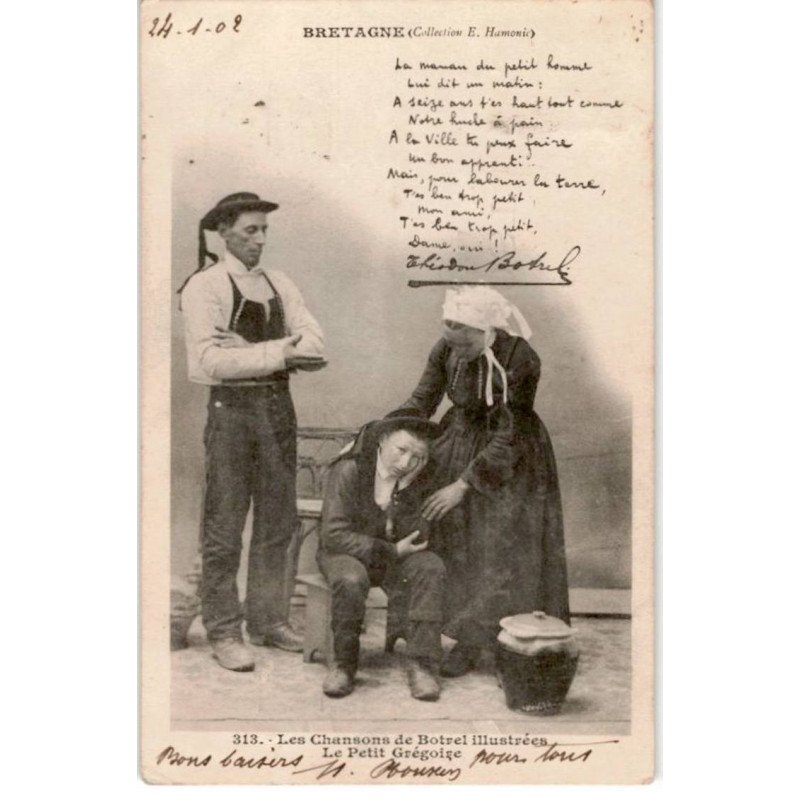 24-1-02
BRETAGNE (Collection E. Hamonic)
La maman du petit homme
Lui dit un matin :
A seize ans t'es haut tout comme
Notre huche à pain
A la Ville tu peux faire
Un bon apprenti..
Mais, pour labourer la terre,
T'es ben trop petit,
mon ami,
T'es ben trop petit,
Dame, oui !
Théodore Botrel
313. - Les Chansons de Botrel illustrées
Le Petit Grégoire
Bons baisers pour tous